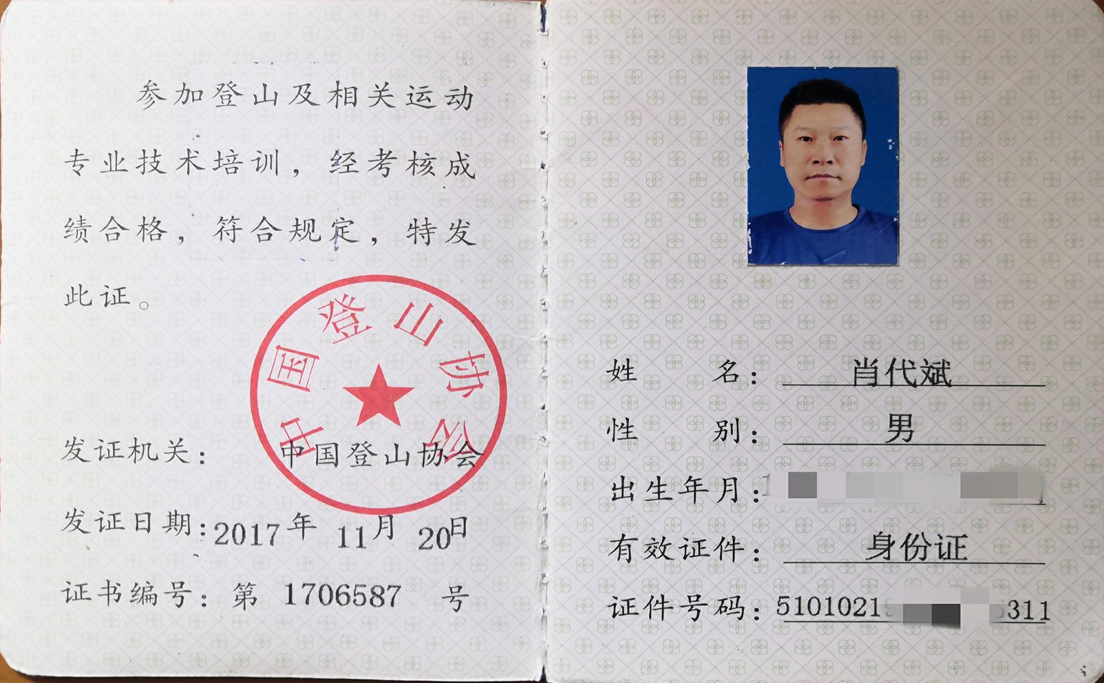 参加登山及相关运动
专业技术培训，经考核成
绩合格，符合规定，特发
此证。
中国登山协会
发证机关：中国登山协会
发证日期：2017年 11月 20日
证书编号：第 1706587 号
姓 名：肖代斌
性 别：男
出生年月：
有效证件：身份证
证件号码：5101021 311